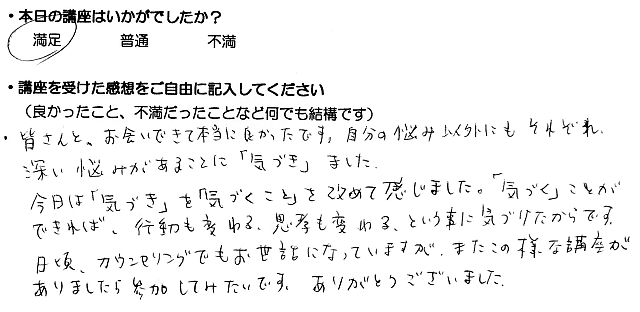 ・本日の講座はいかがでしたか？
満足　普通　不満
・講座を受けた感想をご自由に記入してください
（良かったこと、不満だったことなど何でも結構です）
・皆さんと、お会いできて本当に良かったです。自分の悩み以外にもそれぞれ、
深い悩みがあることに「気づき」ました。
今日は「気づき」を「気づくこと」を改めて感じました。「気づく」ことが
できれば、行動も変わる、思考も変わる、という事に気づけたからです。
日頃、カウンセリングでもお世話になっていますが、またこの様な講座が
ありましたら参加してみたいです。ありがとうございました。